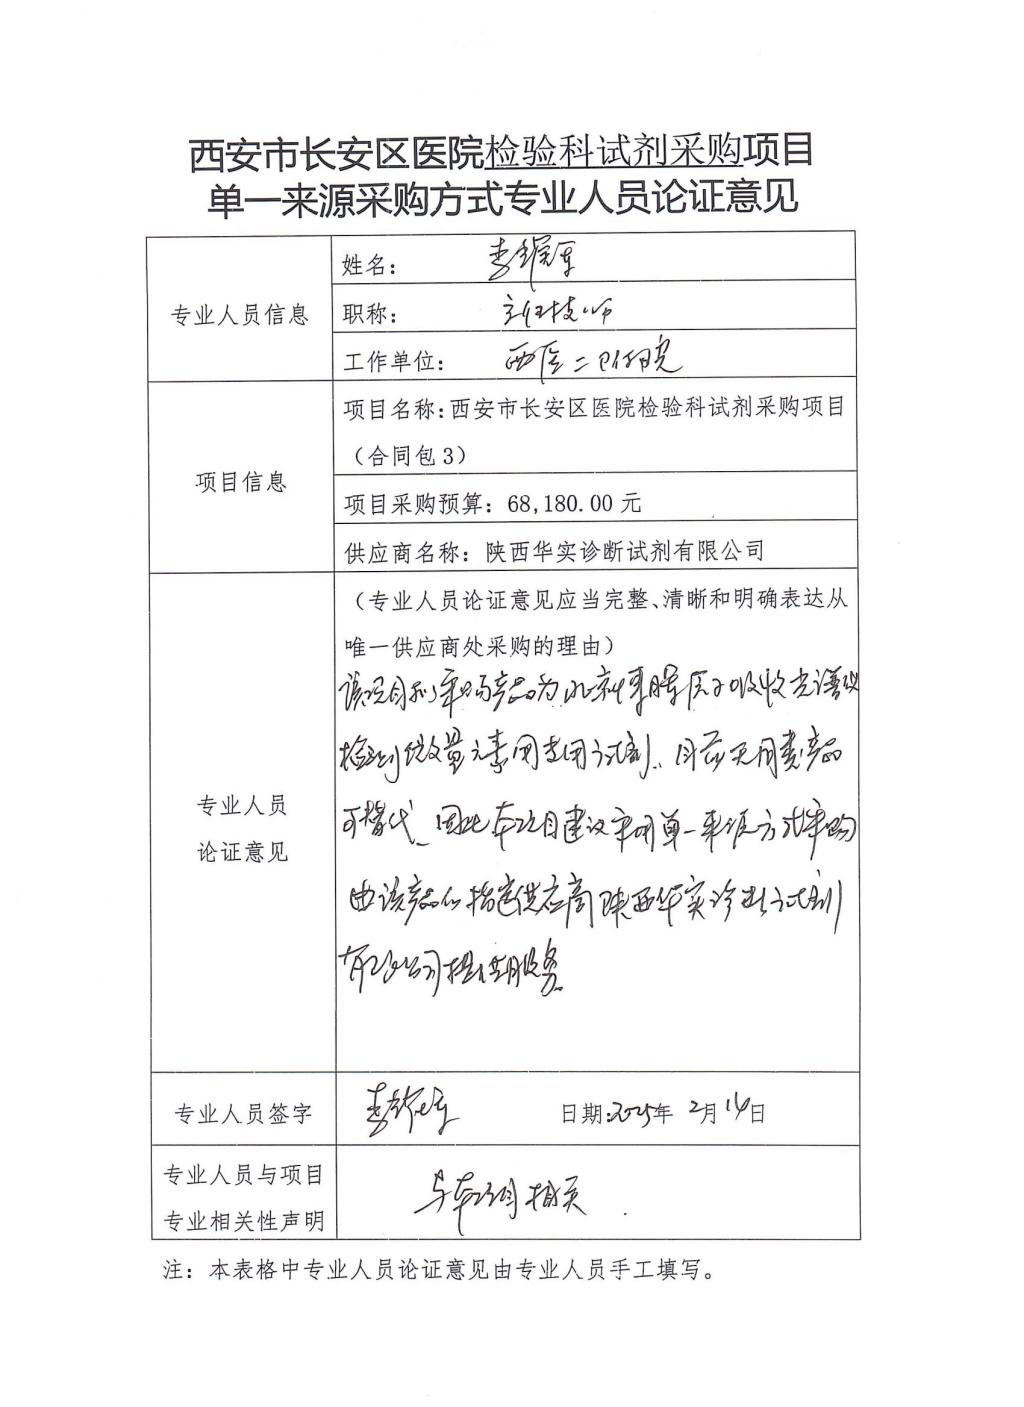 西安市长安区医院检验科试剂采购项目
单一来源采购方式专业人员论证意见
专业人员信息
姓名：李
职称：主任技师
工作单位：西医二附院
项目信息
项目名称：西安市长安区医院检验科试剂采购项目
（合同包 3）
项目采购预算：68,180.00 元
供应商名称：陕西华实诊断试剂有限公司
专业人员
论证意见
（专业人员论证意见应当完整、清晰和明确表达从
唯一供应商处采购的理由）
该项目拟采购产品为北京 原子吸收光谱仪
检测微量元素用专用试剂，目前无同类产品
可替代，因此本项目建议采用单一来源方式采购
由该产品的指定供应商陕西华实诊断试剂
有限公司提供服务。
专业人员签字
李
日期：2025年 2月 14日
专业人员与项目
专业相关性声明
与本项目相关
注：本表格中专业人员论证意见由专业人员手工填写。